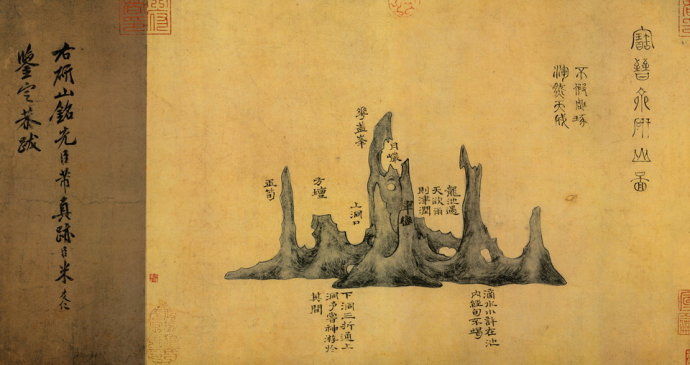 寶晉斎研山圖
不假雕琢
渾然天成
龍池遇
天欲雨
則津潤
滴水小許在池
內經旬不竭
華蓋峯
月巖
翠巒
上洞口
方壇
玉筍
下洞三折通上
洞予嘗神遊於
其間
右研山銘先臣芾真跡臣米友仁
鑒定恭跋